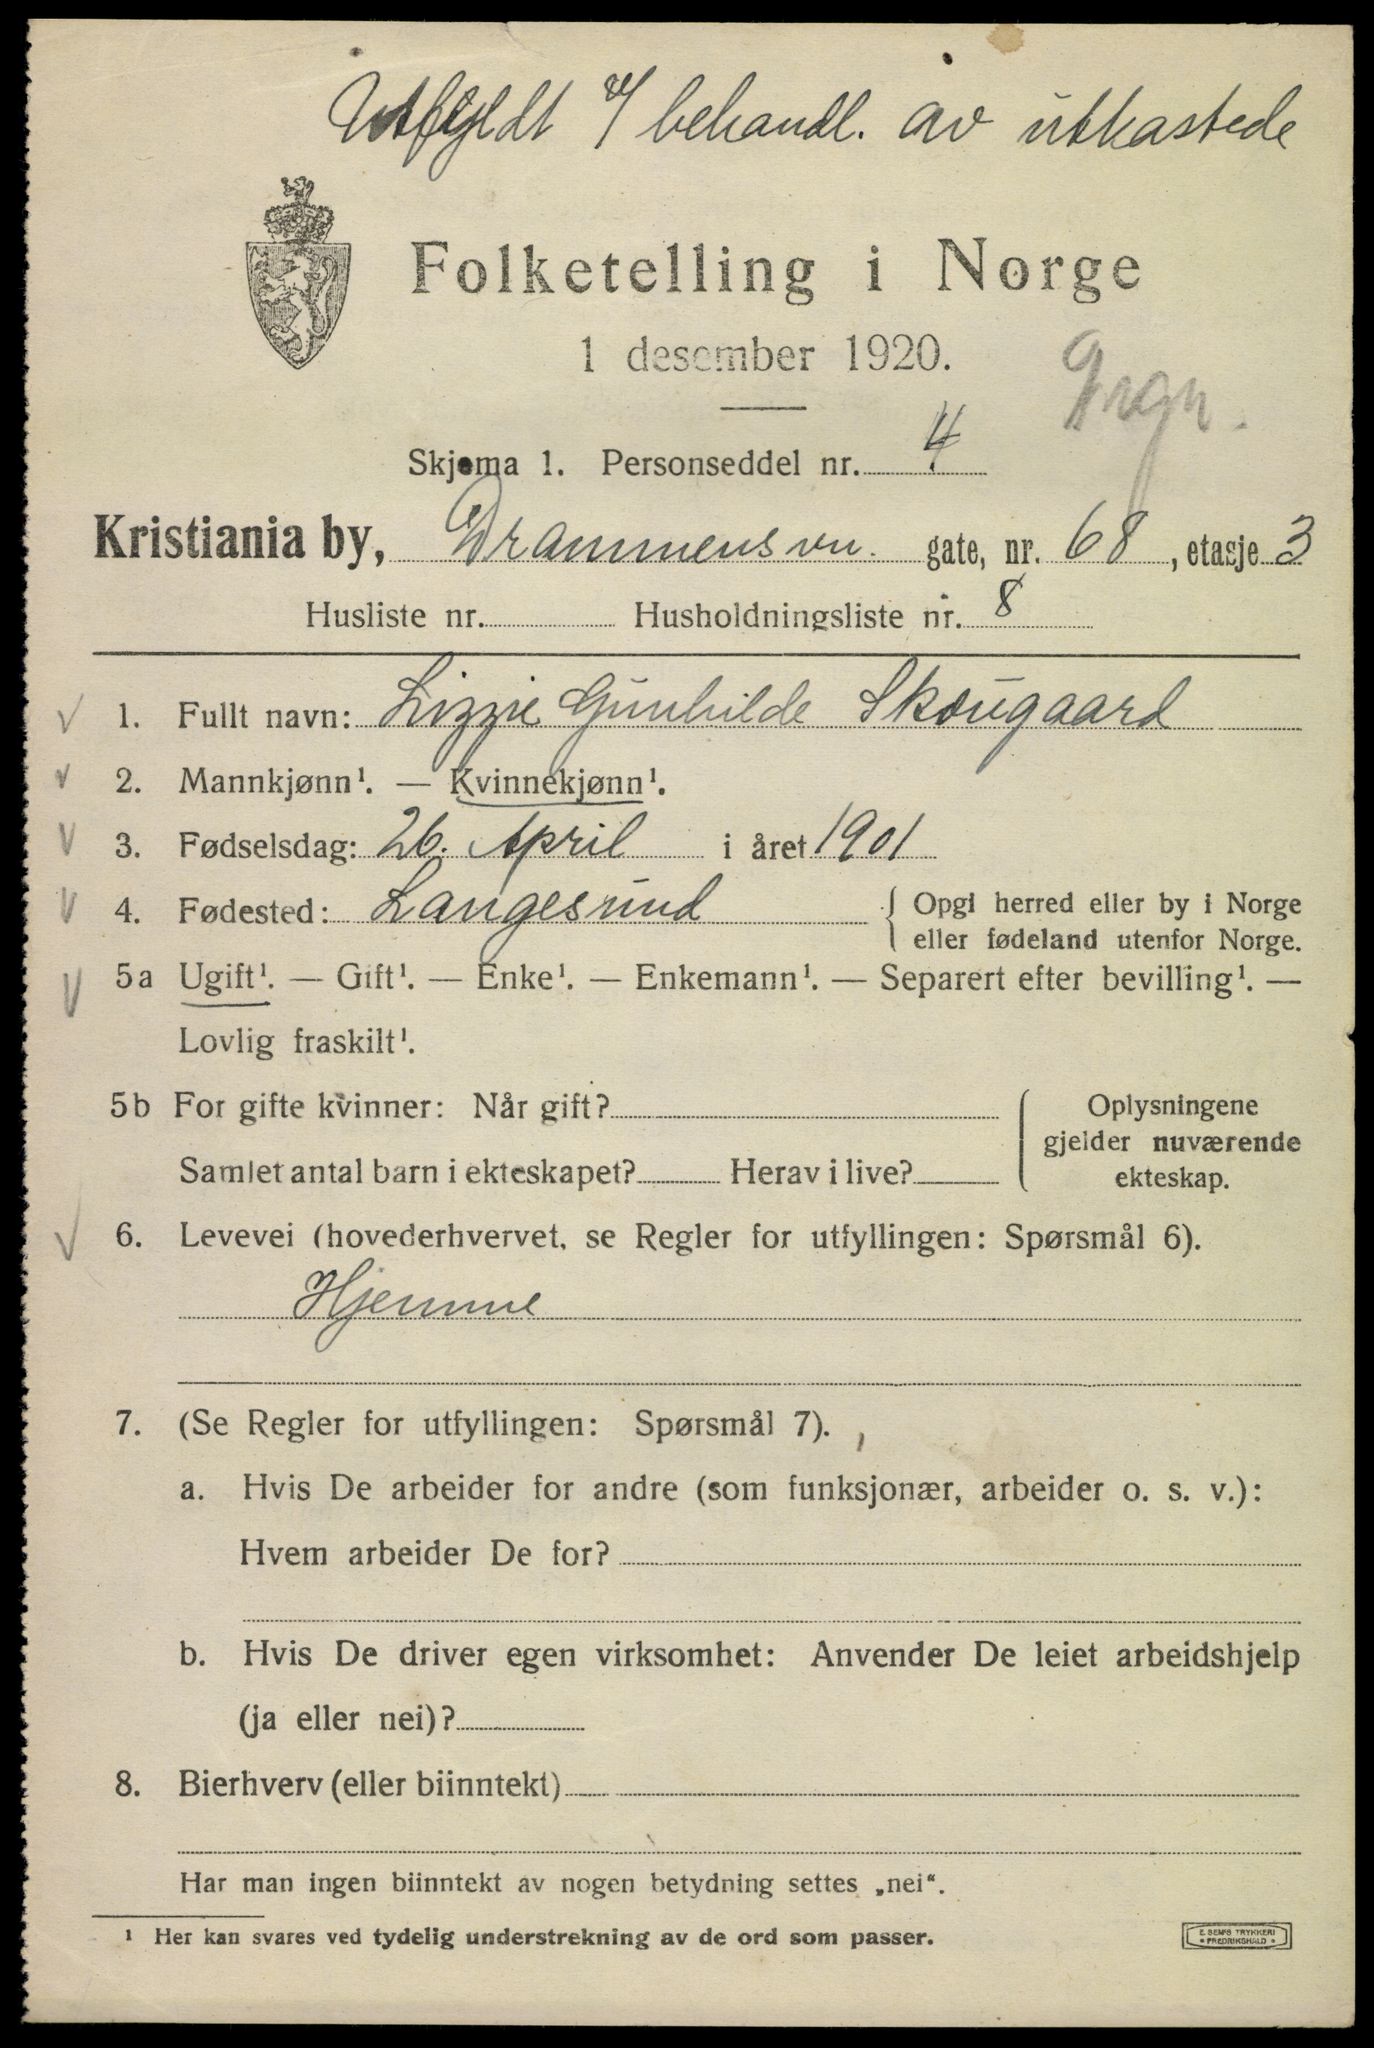 Utfyldt v/ behandl. av utkastede
Folketelling i Norge
1 desember 1920.
Skjema 1. Personseddel nr. 4
Kristiania by, Drammensvn. gate, nr. 68, etasje 3
Husliste nr. Husholdningsliste nr. 8
1. Fullt navn: Lizzie Gunhilde Skougaard
2. Mannkjønn¹. — Kvinnekjønn¹.
3. Fødselsdag: 26. April i året 1901
4. Fødested: Langesund { Opgi herred eller by i Norge
eller fødeland utenfor Norge.
5a Ugift¹. — Gift¹. — Enke¹. — Enkemann¹. — Separert efter bevilling¹. —
Lovlig fraskilt¹.
5b For gifte kvinner: Når gift? { Oplysningene
gjelder nuværende
Samlet antal barn i ekteskapet? Herav i live? ekteskap.
6. Levevei (hovederhvervet, se Regler for utfyllingen: Spørsmål 6).
Hjemme
7. (Se Regler for utfyllingen: Spørsmål 7).
a. Hvis De arbeider for andre (som funksjonær, arbeider o. s. v.):
Hvem arbeider De for?
b. Hvis De driver egen virksomhet: Anvender De leiet arbeidshjelp
(ja eller nei)?
8. Bierhverv (eller biinntekt)
Har man ingen biinntekt av nogen betydning settes „nei“.
¹ Her kan svares ved tydelig understrekning av de ord som passer.
E. SEM'S TRYKKERI
• FREDRIKSHALD •